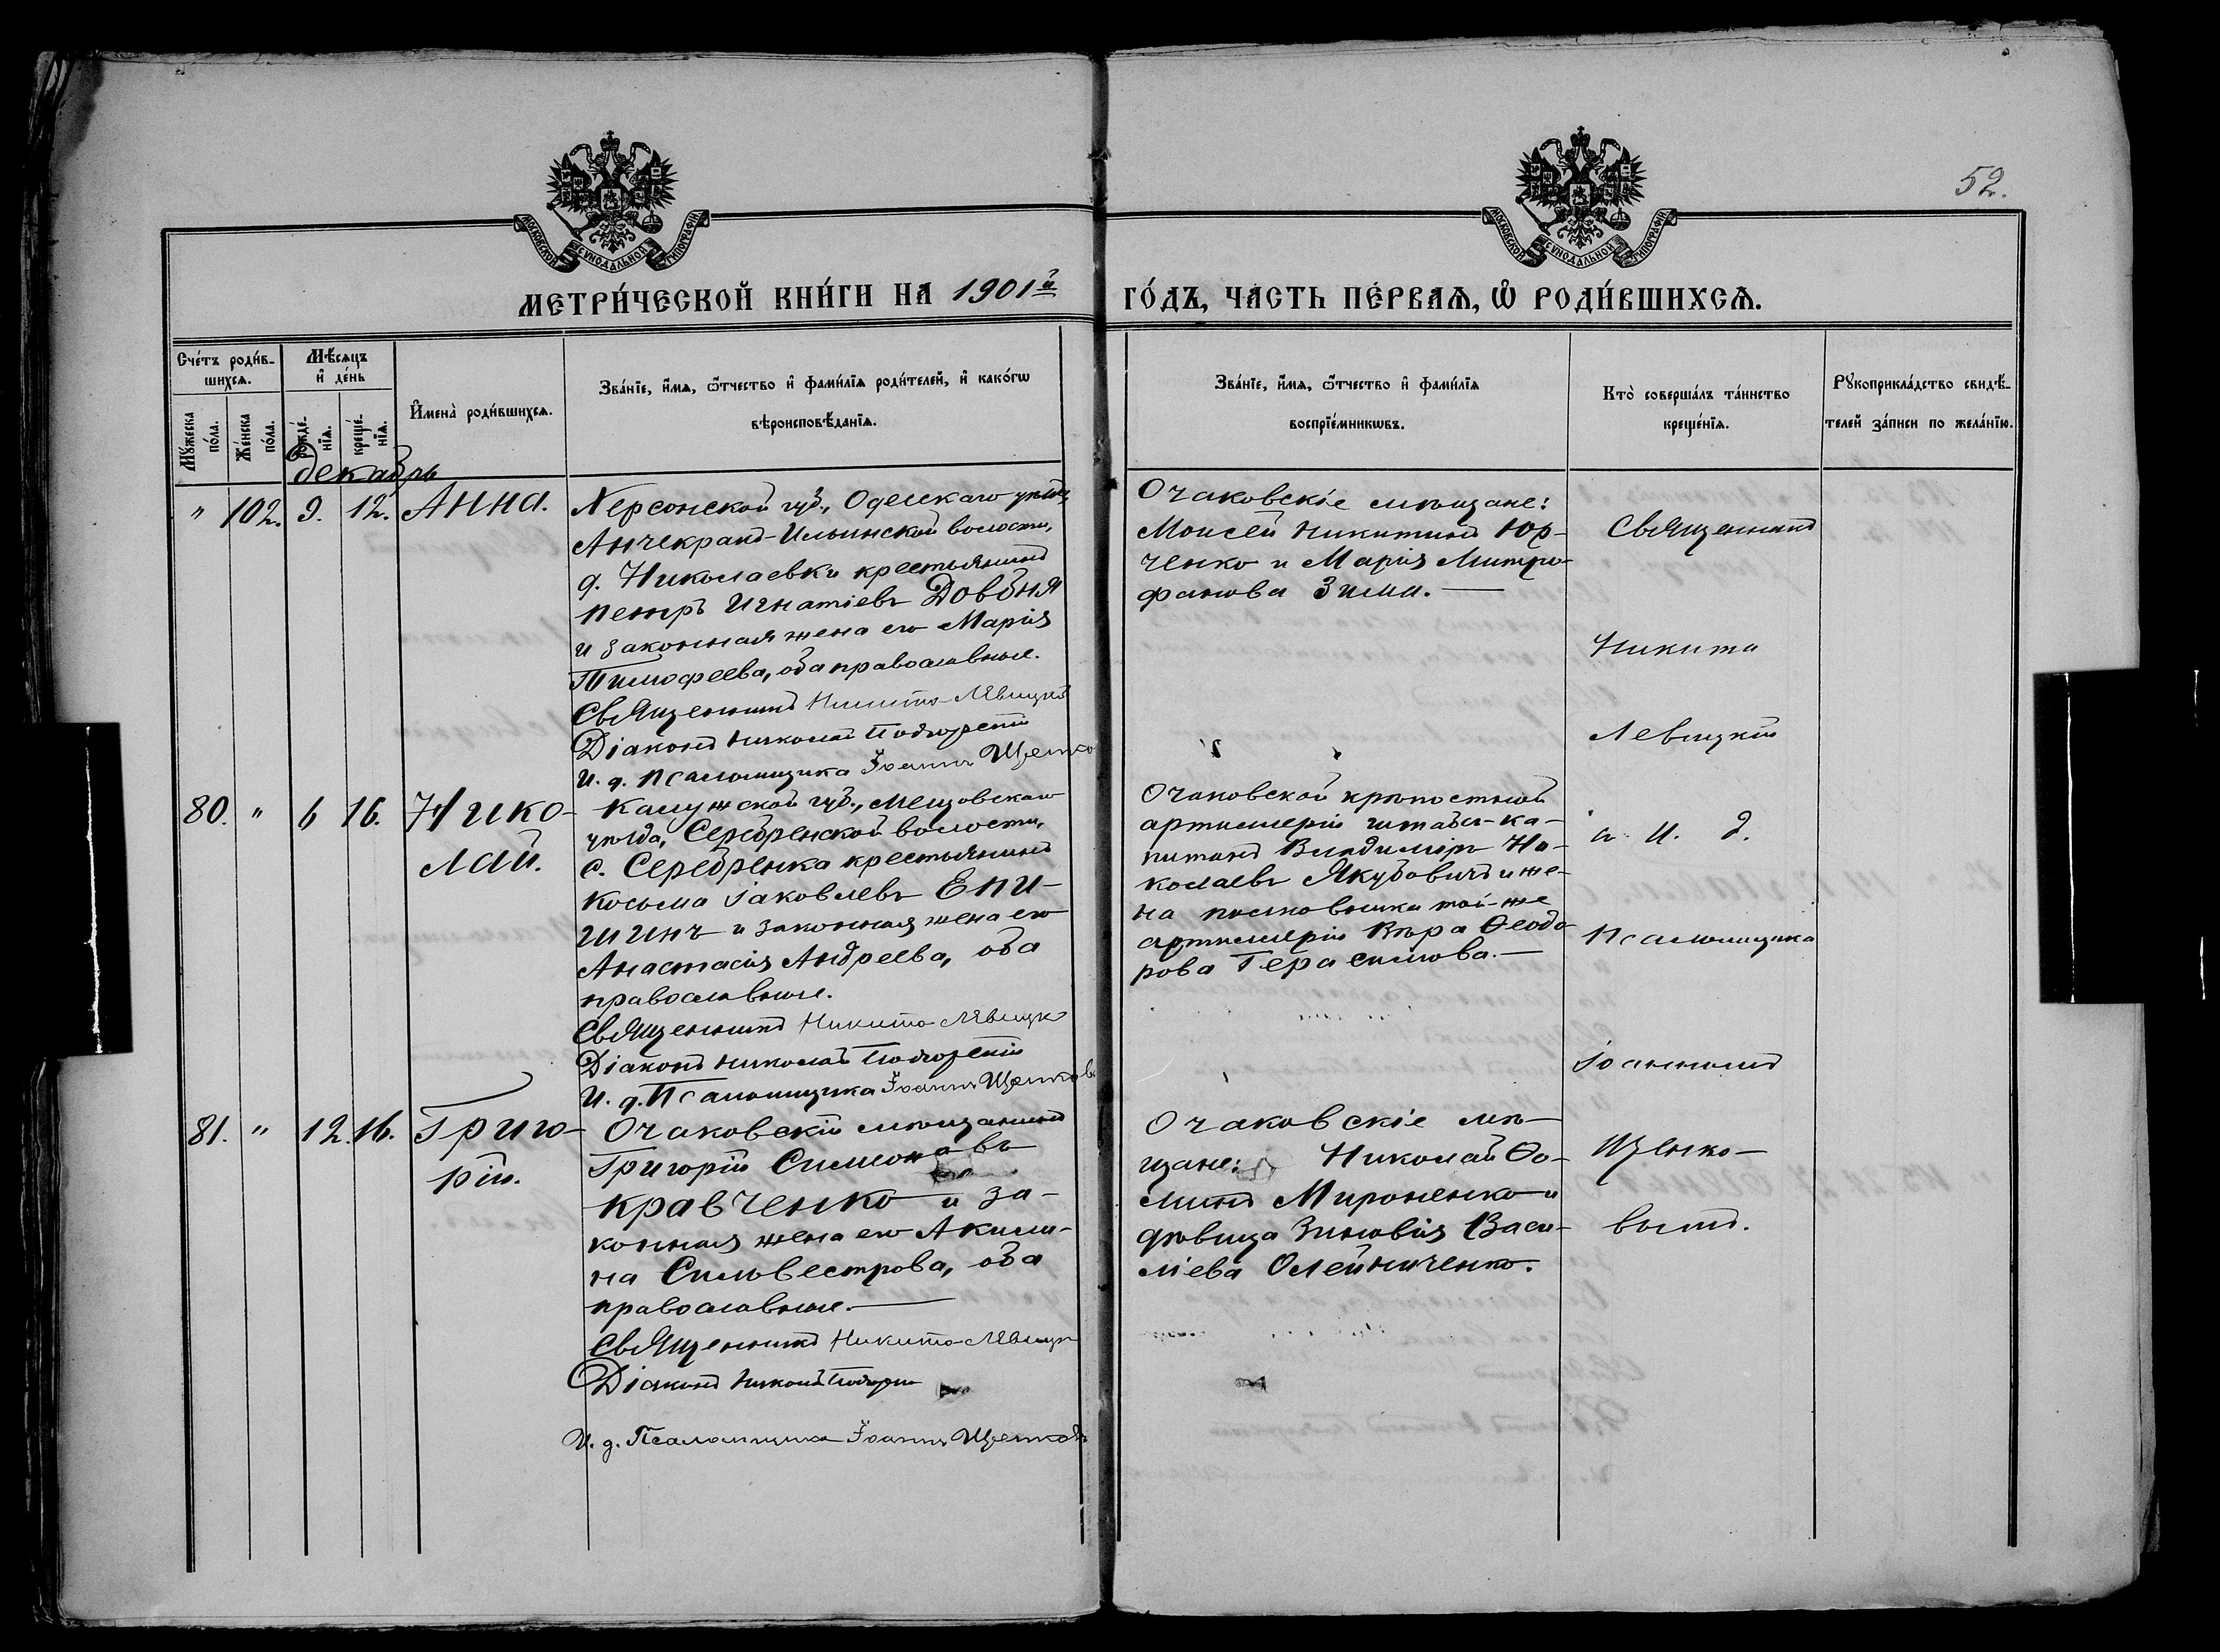 52.
МОСКОВСКОЙ СУНОДАЛЬНОЙ ТИПОГРАФІИ
МОСКОВСКОЙ СУНОДАЛЬНОЙ ТИПОГРАФІИ
МЕТРИ́ЧЕСКОЙ КНИ́ГИ НА 1901й
ГО́ДЪ, ЧА́СТЬ ПЕ́РВАѦ, Ѽ РОДИ́ВШИХСѦ.
Счéтъ роди́в-
шихсѧ.
Мꙋ́жеска
по́ла.
Же́нска
по́ла.
Мѣ́сѧцъ
и҆ де́нь
рожде́-
нїѧ.
креще́-
нїѧ.
И҆мена̀ роди́вшихсѧ.
Зва́нїе, и҆́мѧ, ѻ҆́тчество и҆ фами́лїѧ роди́телей, и҆ како́гѡ
вѣроисповѣ́данїѧ.
Зва́нїе, и҆́мѧ, ѻ҆́тчество и҆ фами́лїѧ
воспрїе́мникѡвъ.
Кто̀ соверша́лъ та́инство
креще́нїѧ.
Рꙋкоприкла́дство свидѣ́-
телей за́писи по жела́нїю.
декабрь
" 102. 9. 12. Анна.
Херсонской губ., Одесскаго уѣзда,
Анчекрак-Ильинской волости,
д. Николаевки крестьянинъ
Петръ Игнатіевъ Довбня
и законная жена его Марія
Тимофеева, оба православные.
Священникъ Никита Левицкій
Діаконъ Николай Подгорскій
И. д. Псаломщика Іоаннъ Щенков
Очаковскіе мѣщане:
Моисей Никитинъ Юр-
ченко и Марія Митро-
фанова Зима.
Священникъ
Никита
Левицкій
и И. д.
Псаломщика
Іоанномъ
Щенко-
вымъ.
80. " 6 16. Нико-
лай.
Калужской губ., Мещовскаго
уѣзда, Серебренской волости,
с. Серебренка крестьянинъ
Косьма Іаковлевъ Епи-
шинъ и законная жена его
Анастасія Андреева, оба
православные.
Священникъ Никита Левицк
Діаконъ Николай Подгорскій
И. д. Псаломщика Іоаннъ Щенков
Очаковской крѣпостной
артиллеріи штабсъ-ка-
питанъ Владиміръ Ни-
колаевъ Якубовичъ и же-
на полковника той-же
артиллеріи Вѣра Ѳеодо-
рова Герасимова.
81. " 12. 16. Григо-
рій.
Очаковскій мѣщанинъ
Григорій Симеоновъ
Кравченко и за-
конная жена его Акили-
на Сильвестрова, оба
православные.
Священникъ Никита Левицк
Діаконъ Николай Подгорскій
И. д. Псаломщика Іоаннъ Щенковъ
Очаковскіе мѣ-
щане: Николай Ѳо-
минъ Мироненко и
дѣвица Зиновія Васи-
ліева Олейниченко.